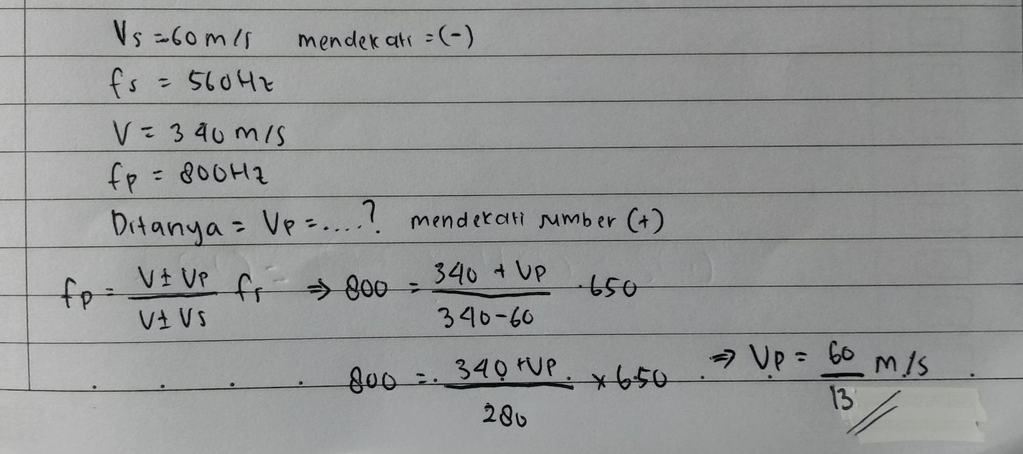 Vs = 60 m/s mendekati = (-)
fs = 560Hz
V = 340 m/s
fp = 800Hz
Ditanya = Vp = ....? mendekati sumber (+)
fp = V ± Vp / V ± Vs fs ⇒ 800 = 340 + Vp / 340-60 . 650
800 = 340 + Vp / 280 x 650 ⇒ Vp = 60 / 13 m/s